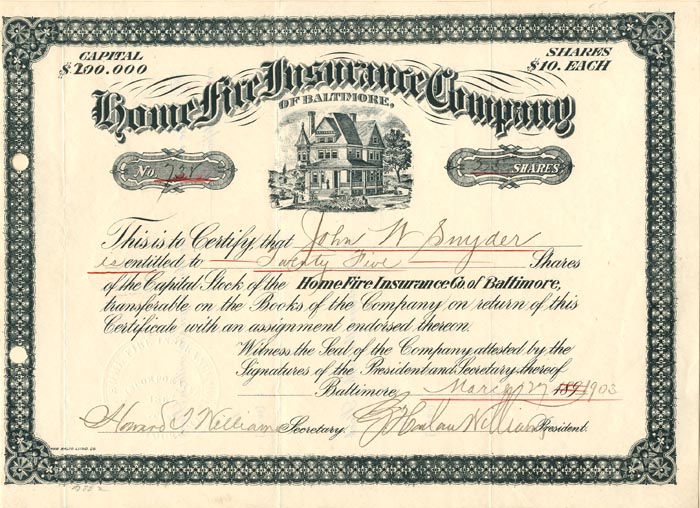 CAPITAL
$200.000
SHARES
$10. EACH
Home Fire Insurance Company
OF BALTIMORE.
No. 738
25 SHARES
This is to Certify, that John W Snyder
is entitled to Twenty Five Shares
of the Capital Stock of the Home Fire Insurance Co. of Baltimore,
transferable on the Books of the Company on return of this
Certificate with an assignment endorsed thereon.
Witness the Seal of the Company attested by the
Signatures of the President and Secretary thereof
Baltimore, March 27 189 1903
Howard Williams Secretary.
Williams President.